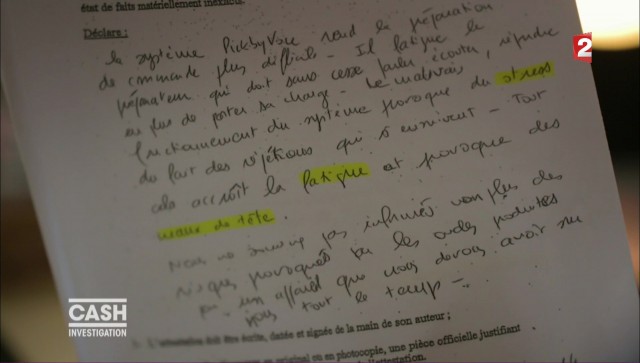 état de faits matériellement inexacts.
Déclare :
Le système PickbyVoice rend la préparation
de commande plus difficile - Il fatigue le
préparateur qui doit sans cesse parler écouter, répondre
en plus de porter sa charge - Le mauvais
fonctionnement du système provoque du stress
du fait des répétitions qui s'ensuivent - Tout
cela accroît la fatigue et provoque des
maux de tête.
Nous ne sommes pas informés non plus des
risques provoqués par les ondes produites
par un appareil que nous devons avoir sur
nous tout le temps -
L'attestation doit être écrite, datée et signée de la main de son auteur ;
original ou en photocopie, une pièce officielle justifiant
l'attestation.
2
CASH
INVESTIGATION